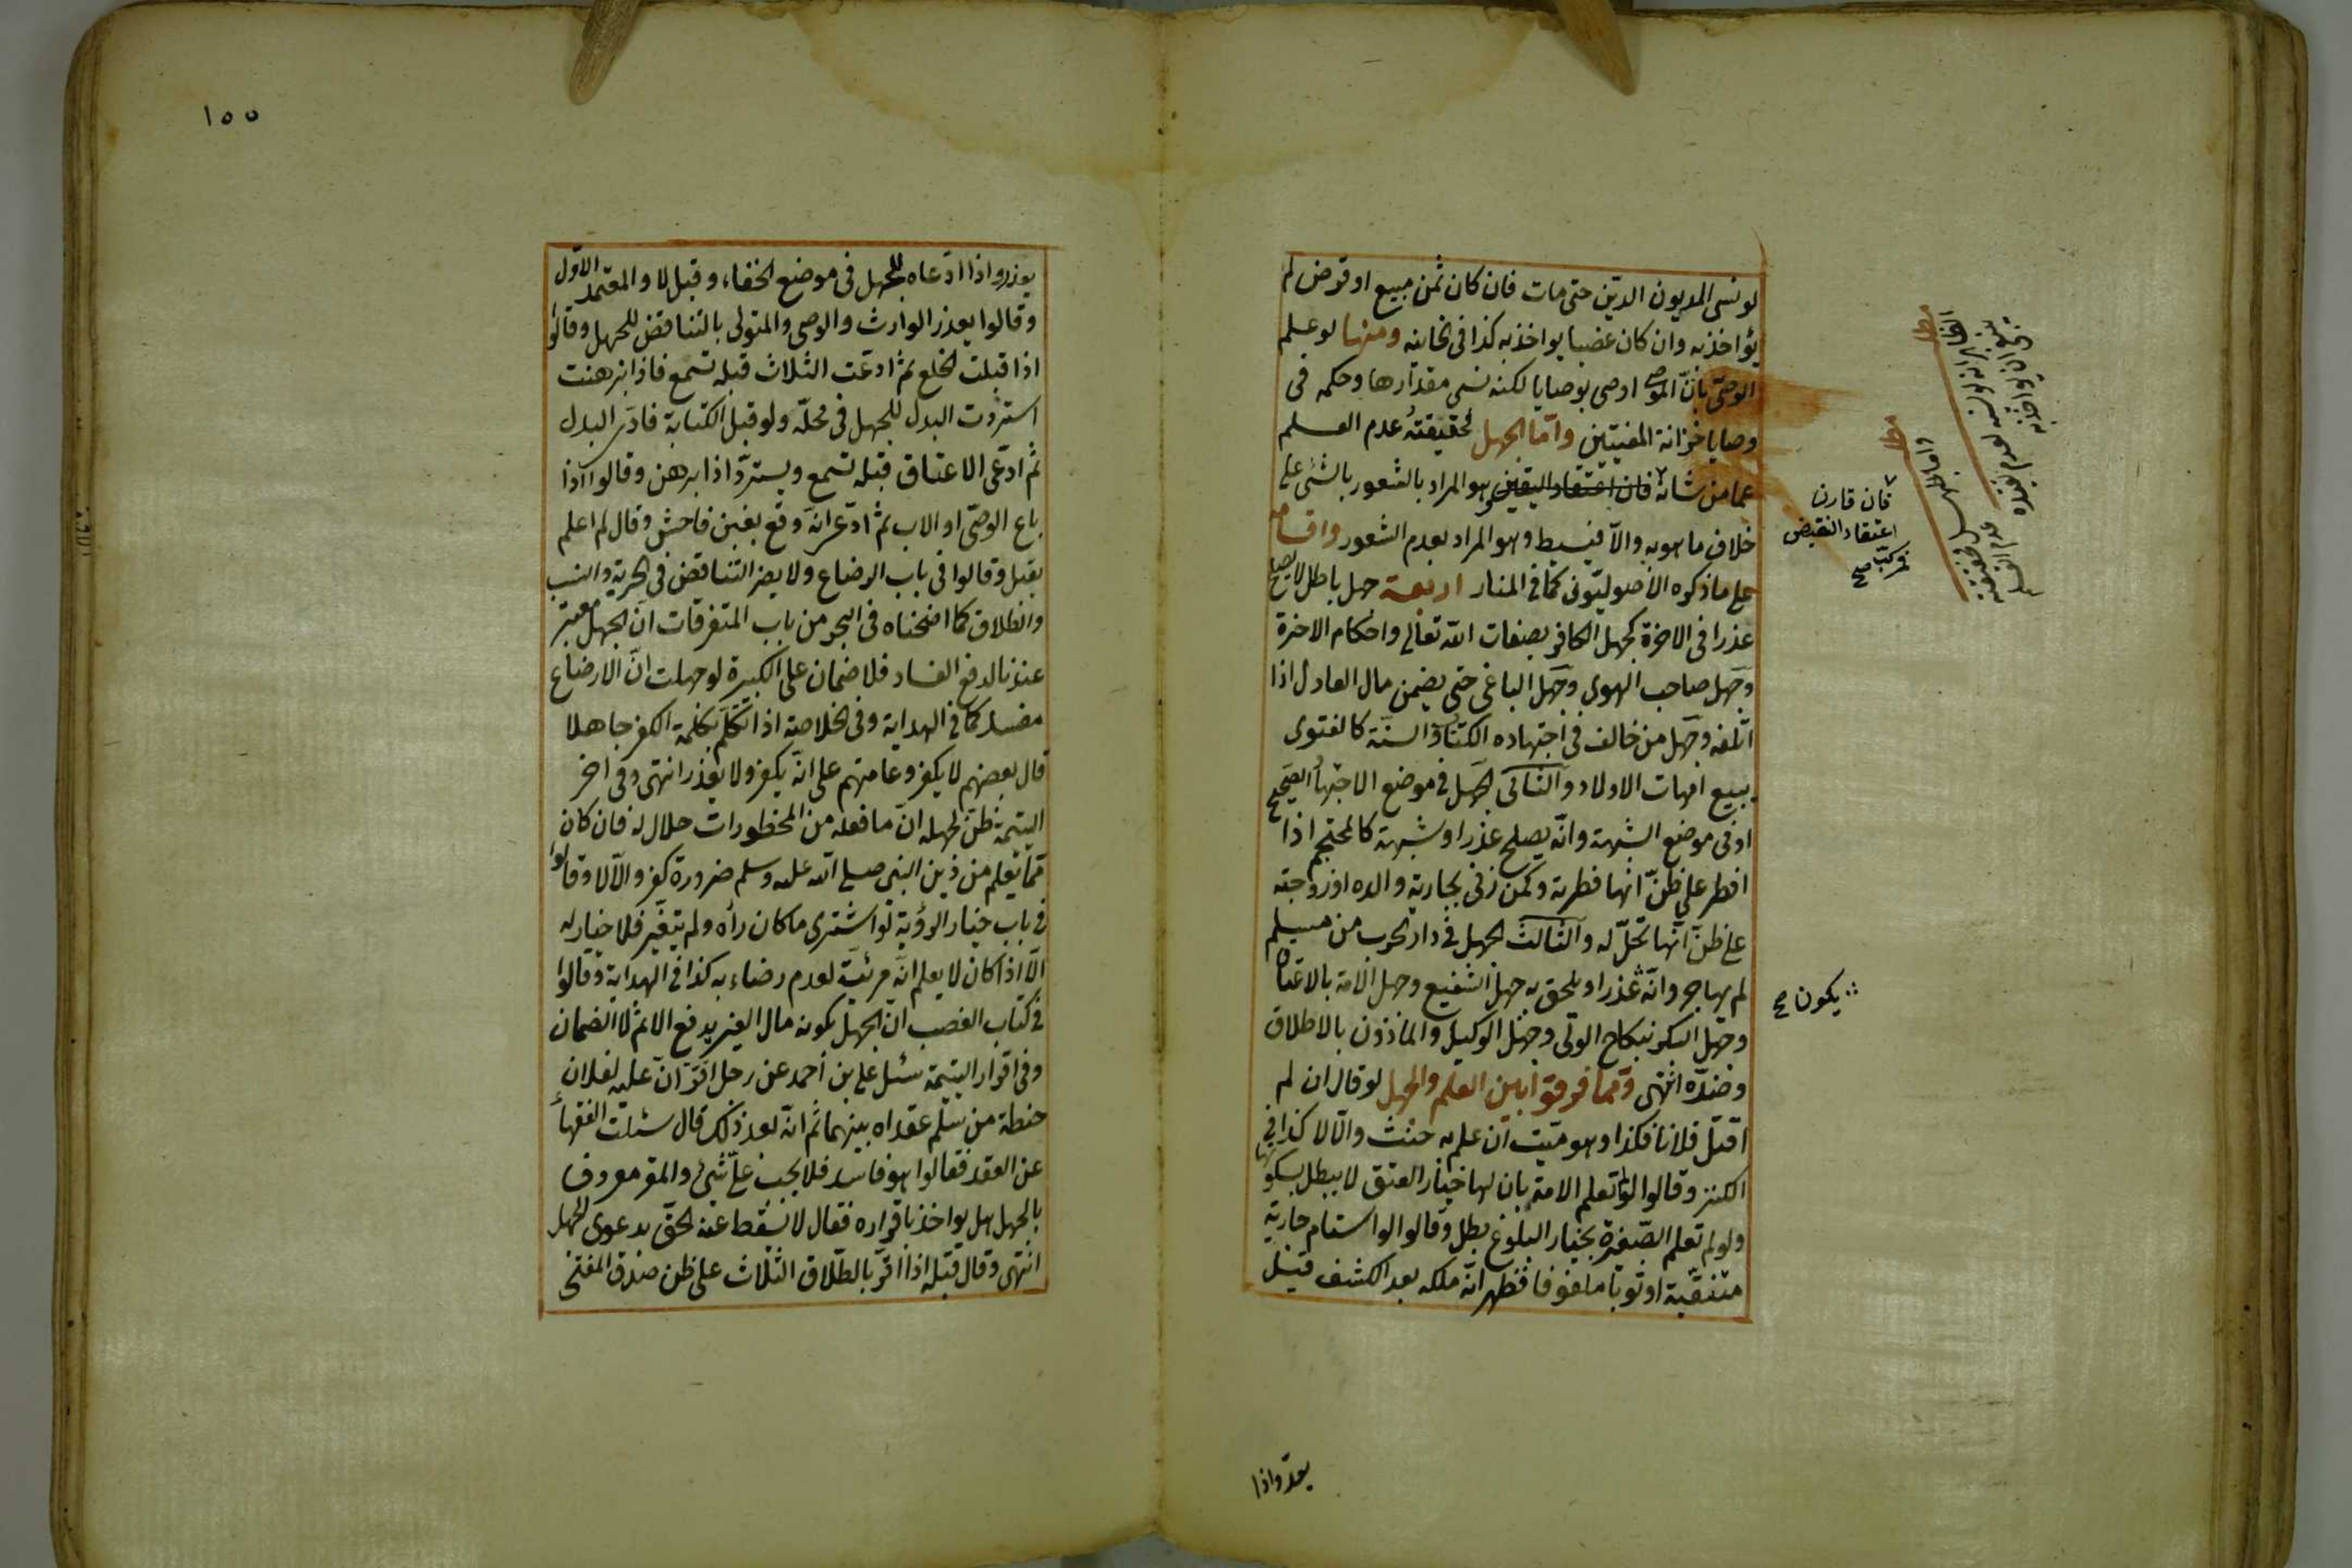 لو نسى المديون الدين حتى مات فان كان ثمن مبيع او قرض لم
يؤاخذ به وان كان غصبا يواخذ به كذا فى الخانية ومنها لو علم
الوصى بأنّ الموصى اوصى بوصايا لكنه نسى مقدارها وحكمه فى
وصايا خزانة المفتيين وامّا الجهل فحقيقته عدم العلم
عما من شانه فان اعتقاد اليقين وهو المراد بالشعور بالشئ على
خلاف ما هو به والّا فبسيط وهو المراد بعدم الشعور واقسامه
على ما ذكره الأصوليّون كما فى المنار اربعة جهل باطل لا يصلح
عذرا فى الاخرة كجهل الكافر بصفات الله تعالى واحكام الاخرة
وجهل صاحب الهوى وجهل الباغى حتى يضمن مال العادل اذا
اتلفه وجهل من خالف فى اجتهاده الكتاب والسنة كالفتوى
ببيع امهات الاولاد والثانى الجهل فى موضع الاجتهاد الصحيح
او فى موضع الشبهة وانّه يصلح عذرا وشبهة كالمحتجم اذا
افطر على ظنّ انها فطرته وكمن زنى بجارية والده او زوجته
على ظنّ انّها تحلّ له والثالث الجهل فى دار الحرب من مسلم
لم يهاجر وانّه عذرا ويلحق به جهل الشفيع وجهل الامة بالاعتاق
وجهل البكر بنكاح الولى وجهل الوكيل والماذون بالاطلاق
وضدّه انتهى وممّا فرقوا بين العلم والجهل لو قال ان لم
اقتل فلانا فكذا وهو ميّت ان علم به حنث والّا لا كذا فى
الكنز وقالوا لو لم تعلم الامة بان لها خيار العتق لا يبطل بسكوتها
ولو لم تعلم الصّغيرة بخيار البلوغ بطل وقالوا لو استام جارية
متنقّبة او ثوبا ملفوفا فظهر انّه ملكه بعد الكشف قيل
فان قارن
اعتقاد النقيض
فمركّب صح
يكون صح
يعذر واذا
١٥٥
يعذر واذا ادّعاه للجهل فى موضع الخفاء وقيل لا والمعتمد الاول
وقالوا يعذر الوارث والوصى والمتولى بالتناقض للجهل وقالوا
اذا قبلت الخلع ثم ادعت الثلاث قبله تسمع فاذا برهنت
استردّت البدل للجهل فى محلّه ولو قبل الكتابة فادى البدل
ثم ادّعى الاعتاق قبله تسمع ويستردّ اذا برهن وقالوا اذا
باع الوصىّ او الاب ثم ادّعى انّه وقع بغبن فاحش وقال لم اعلم
يقبل وقالوا فى باب الرضاع ولا يضر التناقض فى الحرية والنسب
والطلاق كما اوضحناه فى البحر من باب المتفرقات انّ الجهل معتبر
عندنا لدفع الفساد فلا ضمان على الكبيرة لو جهلت انّ الارضاع
مفسد كما فى الهداية وفى الخلاصة اذا تكلّم بكلمة الكفر جاهلا
قال بعضهم لا يكفر وعامتهم على انّه يكفر ولا يعذر انتهى وفى اخر
اليتيمة ظنّ لجهله انّ ما فعله من المحظورات حلال له فان كان
ممّا يعلم من دين النبى صلى الله عليه وسلم ضرورة كفر والّا لا وقالوا
فى باب خيار الرؤية لو اشترى ما كان رأه ولم يتغيّر فلا خيار له
الّا اذا كان لا يعلم انّه مرئيّه لعدم رضاء به كذا فى الهداية وقالوا
فى كتاب الغصب انّ الجهل بكونه مال الغير يدفع الاثم لا الضمان
وفى اقرار اليتيمة سئل على بن أحمد عن رجل اقرّ انّ عليه لفلان
حنطة من سلم عقداه بينهما ثم انّه بعد ذلك قال سئلت الفقهاء
عن العقد فقالوا هو فاسد فلا يجب علىّ شئ والمقر معروف
بالجهل هل يواخذ باقراره فقال لا يسقط عنه الحقّ بدعوى الجهل
انتهى وقال قبله اذا اقرّ بالطّلاق الثلاث على ظن صدق المفتى